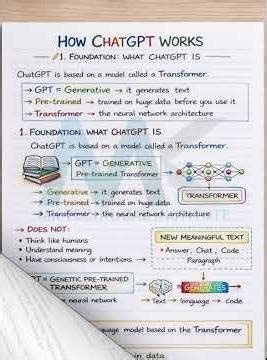 HOW CHATGPT WORKS
1. FOUNDATION: WHAT CHATGPT IS
ChatGPT is based on a model called a Transformer.
→ GPT = Generative → it generates text
→ Pre-trained → trained on huge data before you use it
→ Transformer → the neural network architecture
1. FOUNDATION: WHAT CHATGPT IS
ChatGPT is based on a model called a Transformer.
GPT = GENERATIVE
Pre-trained Transformer
→ Generative → it generates text
→ Pre-trained → trained on huge data
→ Transformer → the neural network architecture
TRANSFORMER
→ DOES NOT:
• Think like humans
• Understand meaning
• Have consciousness or intentions
NEW MEANINGFUL TEXT
• Answer, Chat, Code
Paragraph
GPT = GENETTIC PRE-TRAINED
TRANSFORMER
GENERATES
Text
language → code
neural network
model based on the Transformer
in data.